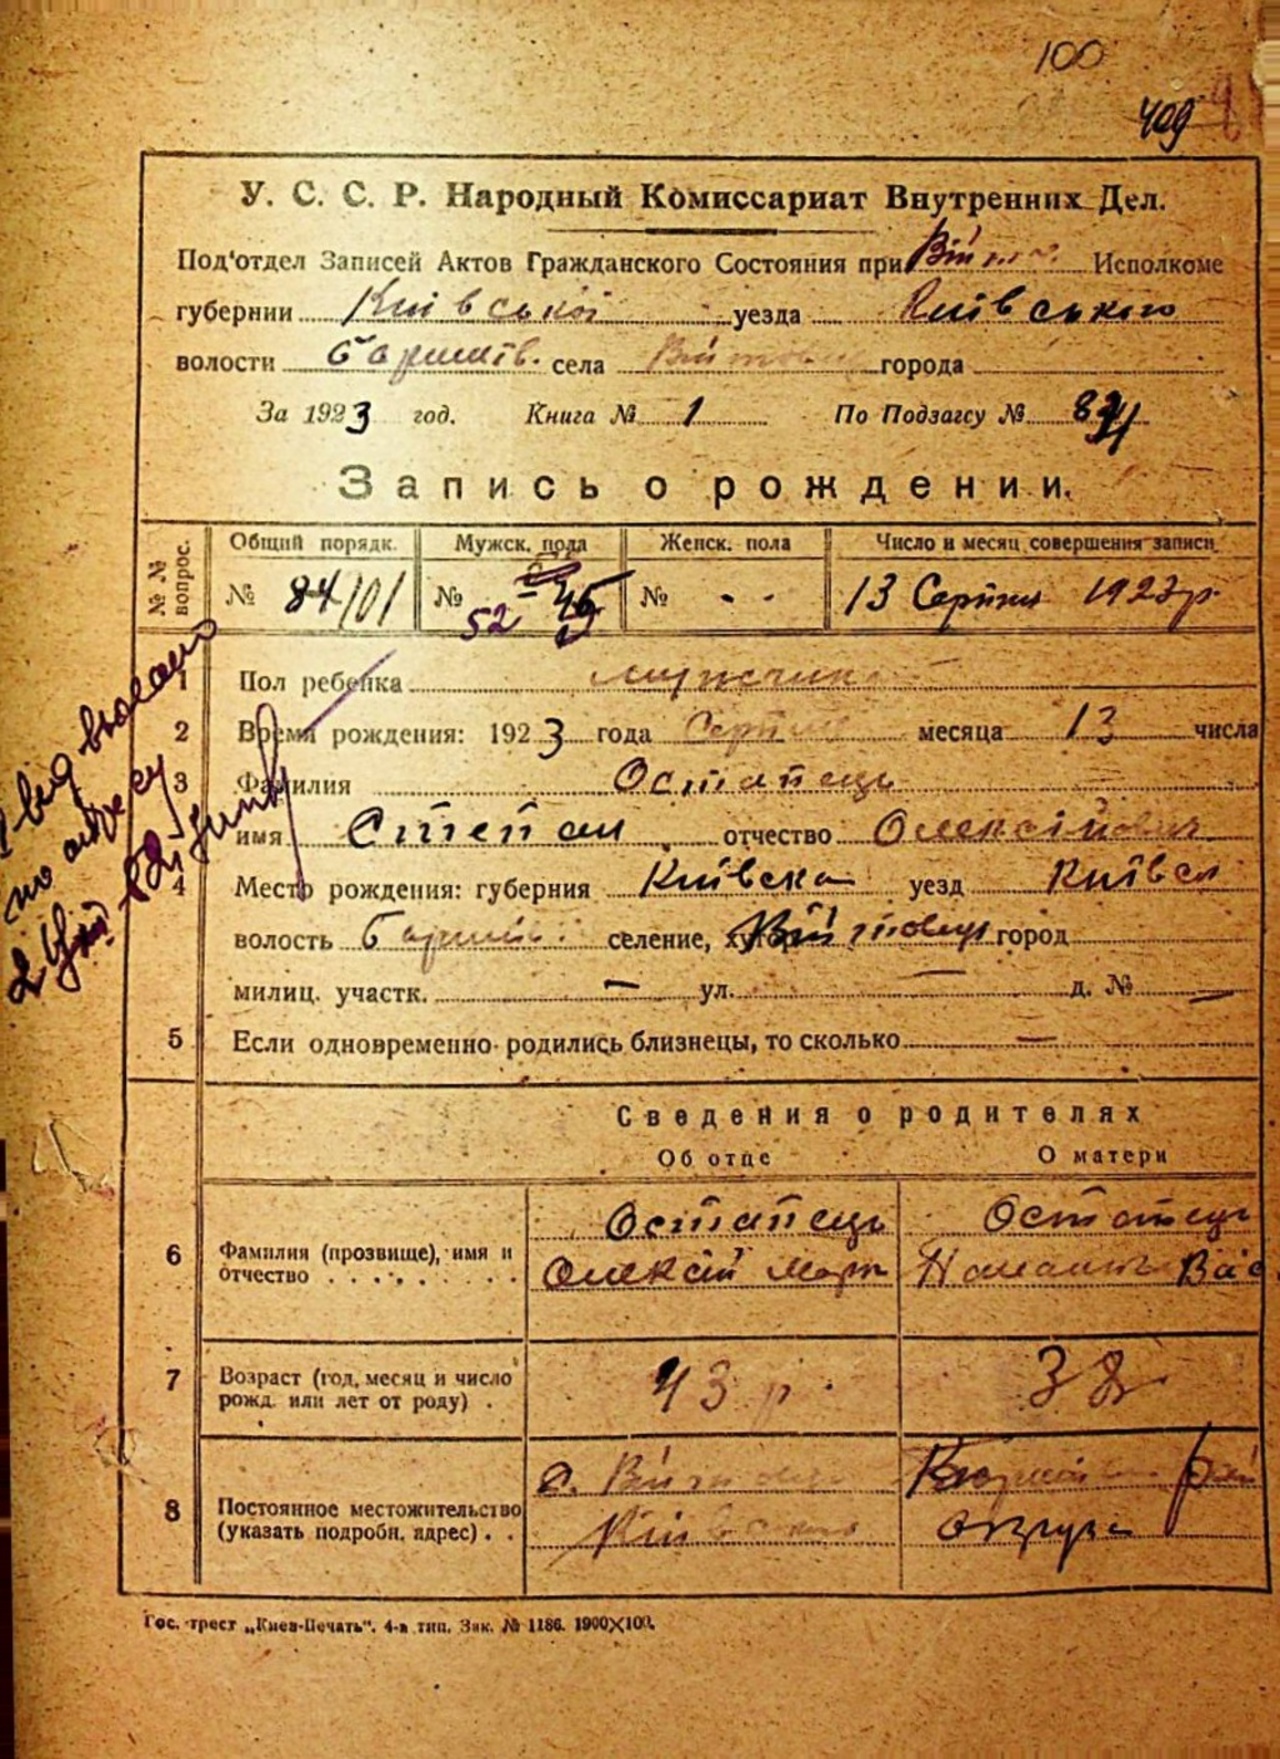 100
409
У. С. С. Р. Народный Комиссариат Внутренних Дел.
Под'отдел Записей Актов Гражданского Состояния при Исполкоме
губернии Київської уезда Київського
волости села города
За 1923 год. Книга № 1 По Подзагсу №
Запись о рождении.
№ № вопрос.
Общий порядк. Мужск. пола Женск. пола Число и месяц совершения записи
№ 84/101 № 52 № 13 Серпня 1923 р.
1 Пол ребенка
2 Время рождения: 1923 года Серпня месяца 13 числа
3 Фамилия Остапець
имя Степан отчество Олексійович
4 Место рождения: губерния Київска уезд Київск
волость селение, город
милиц. участк. — ул. — д. № —
5 Если одновременно родились близнецы, то сколько —
Сведения о родителях
Об отце О матери
Остапець Остапець
6 Фамилия (прозвище), имя и отчество
Олексій Марк Вас
7 Возраст (год, месяц и число рожд. или лет от роду) .
43 р. 38
8 Постоянное местожительство (указать подробн. адрес) . .
с.
округа
Гос. трест „Киев-Печать“. 4-я тип. Зак. № 1186. 1900×100.